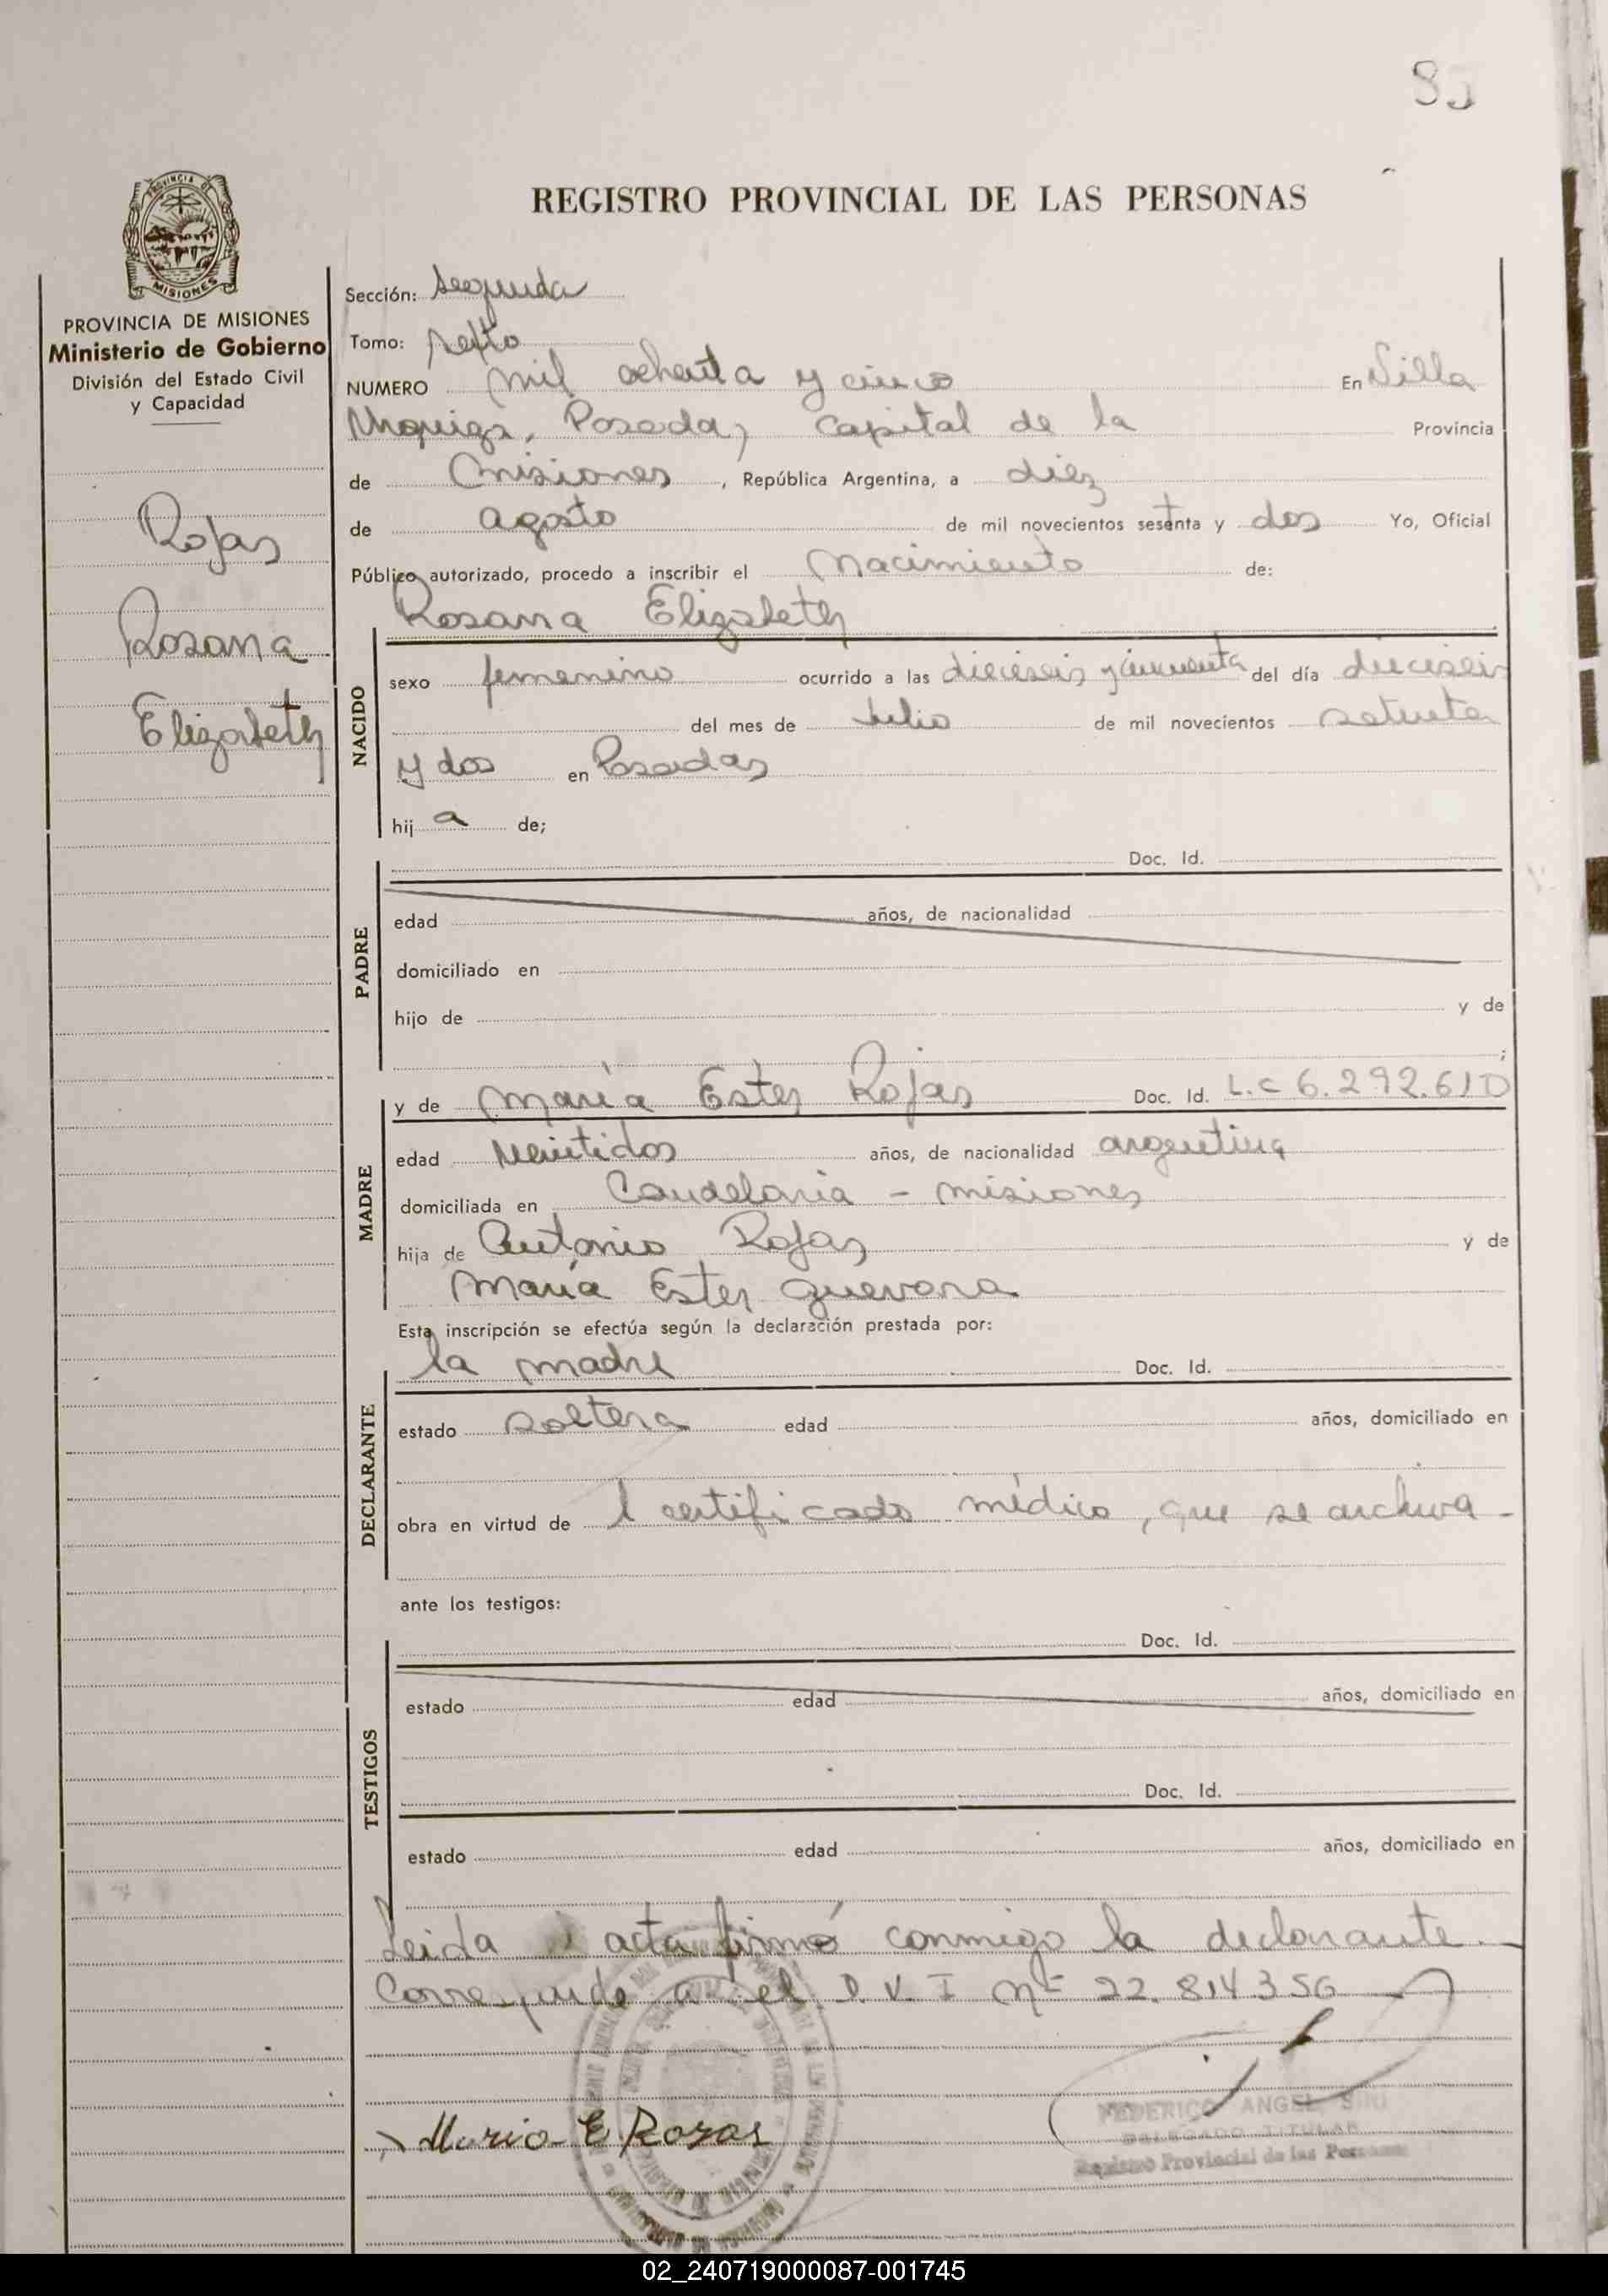 85
PROVINCIA DE
MISIONES
REGISTRO PROVINCIAL DE LAS PERSONAS
PROVINCIA DE MISIONES
Ministerio de Gobierno
División del Estado Civil
y Capacidad
Rojas
Rosana
Elizabeth
Sección: Segunda
Tomo: septo
NUMERO mil ochenta y cinco En Villa
Urquiza, Posadas, Capital de la Provincia
de Misiones, República Argentina, a diez
de agosto de mil novecientos sesenta y dos Yo, Oficial
Público autorizado, procedo a inscribir el Nacimiento de:
Rosana Elizabeth
NACIDO
sexo femenino ocurrido a las dieciseis y cincuenta del día dieciseis
del mes de Julio de mil novecientos setenta
y dos en Posadas
hij a de;
Doc. Id.
PADRE
edad años, de nacionalidad
domiciliado en
hijo de y de
;
y de María Ester Rojas Doc. Id. L.C 6.292.610
MADRE
edad Veintidos años, de nacionalidad argentina
domiciliada en Candelaria - misiones
hija de Antonio Rojas y de
María Ester Guevara
Esta inscripción se efectúa según la declaración prestada por:
la madre Doc. Id.
DECLARANTE
estado soltera edad años, domiciliado en
obra en virtud de l certificado médico, que se archiva -
ante los testigos:
Doc. Id.
TESTIGOS
estado edad años, domiciliado en
Doc. Id.
estado edad años, domiciliado en
Leida el acta firmó conmigo la declarante.-
Corresponde a el D.V.I Nº 22.814356
Maria E Rozas
FEDERICO ANGEL
DELEGADO TITULAR
Registro Provincial de las Personas
02_240719000087-001745